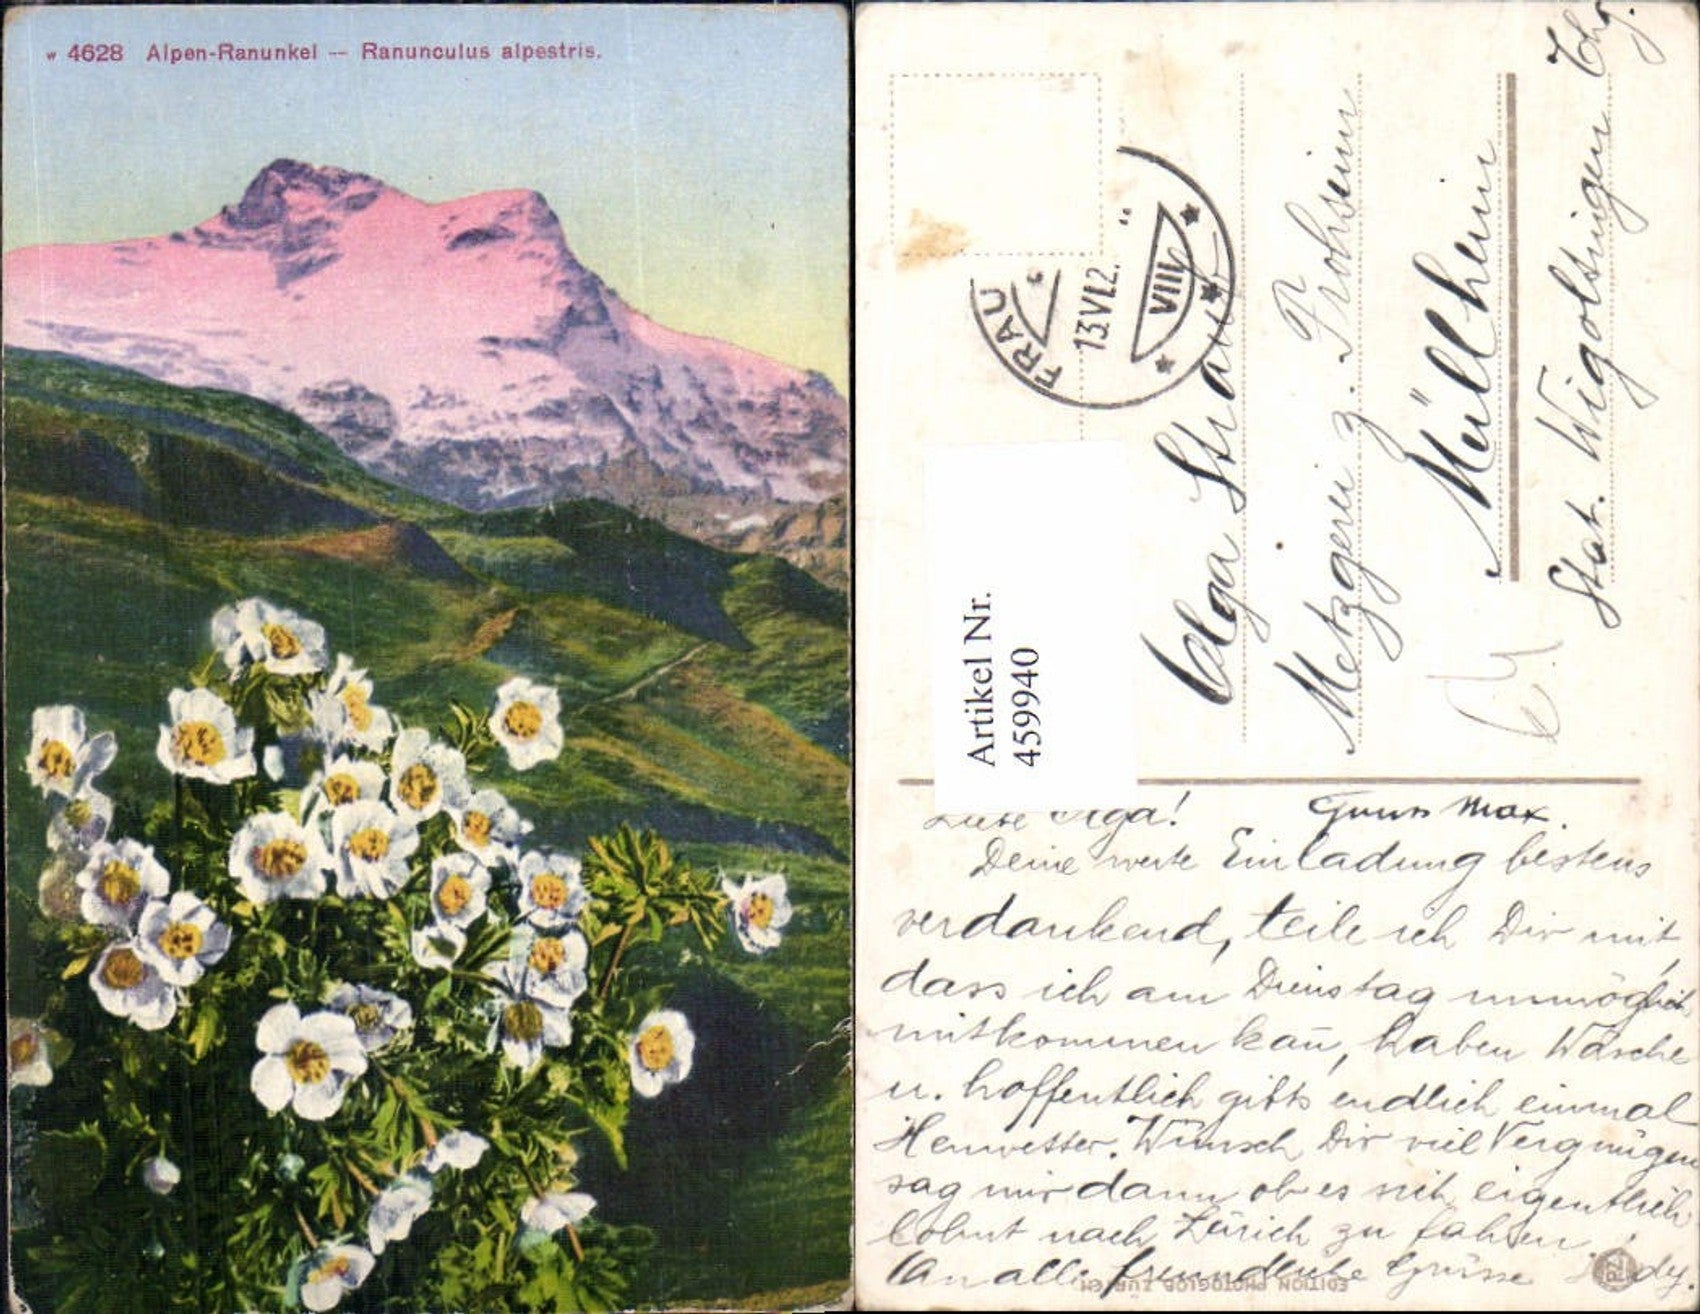 w 4628 Alpen-Ranunkel — Ranunculus alpestris.
FRAU
13.VI.2
VIII
Olga Straub
Metzgerei z. Frohsinn
Müllheim
Stat. Wigoltingen Thg.
Artikel Nr.
459940
Liebe Olga! Gruss Max.
Deine werte Einladung bestens
verdankend, teile ich Dir mit,
dass ich am Dienstag unmöglich
mitkommen kan̄, haben Wäsche
u. hoffentlich gibts endlich einmal
Heuwetter. Wünsch Dir viel Vergnügen
sag mir dann ob es sich eigentlich
lohnt nach Zürich zu fahren!
An alle freundliche Grüsse
EDITION PHOTOGLOB ZÜRICH